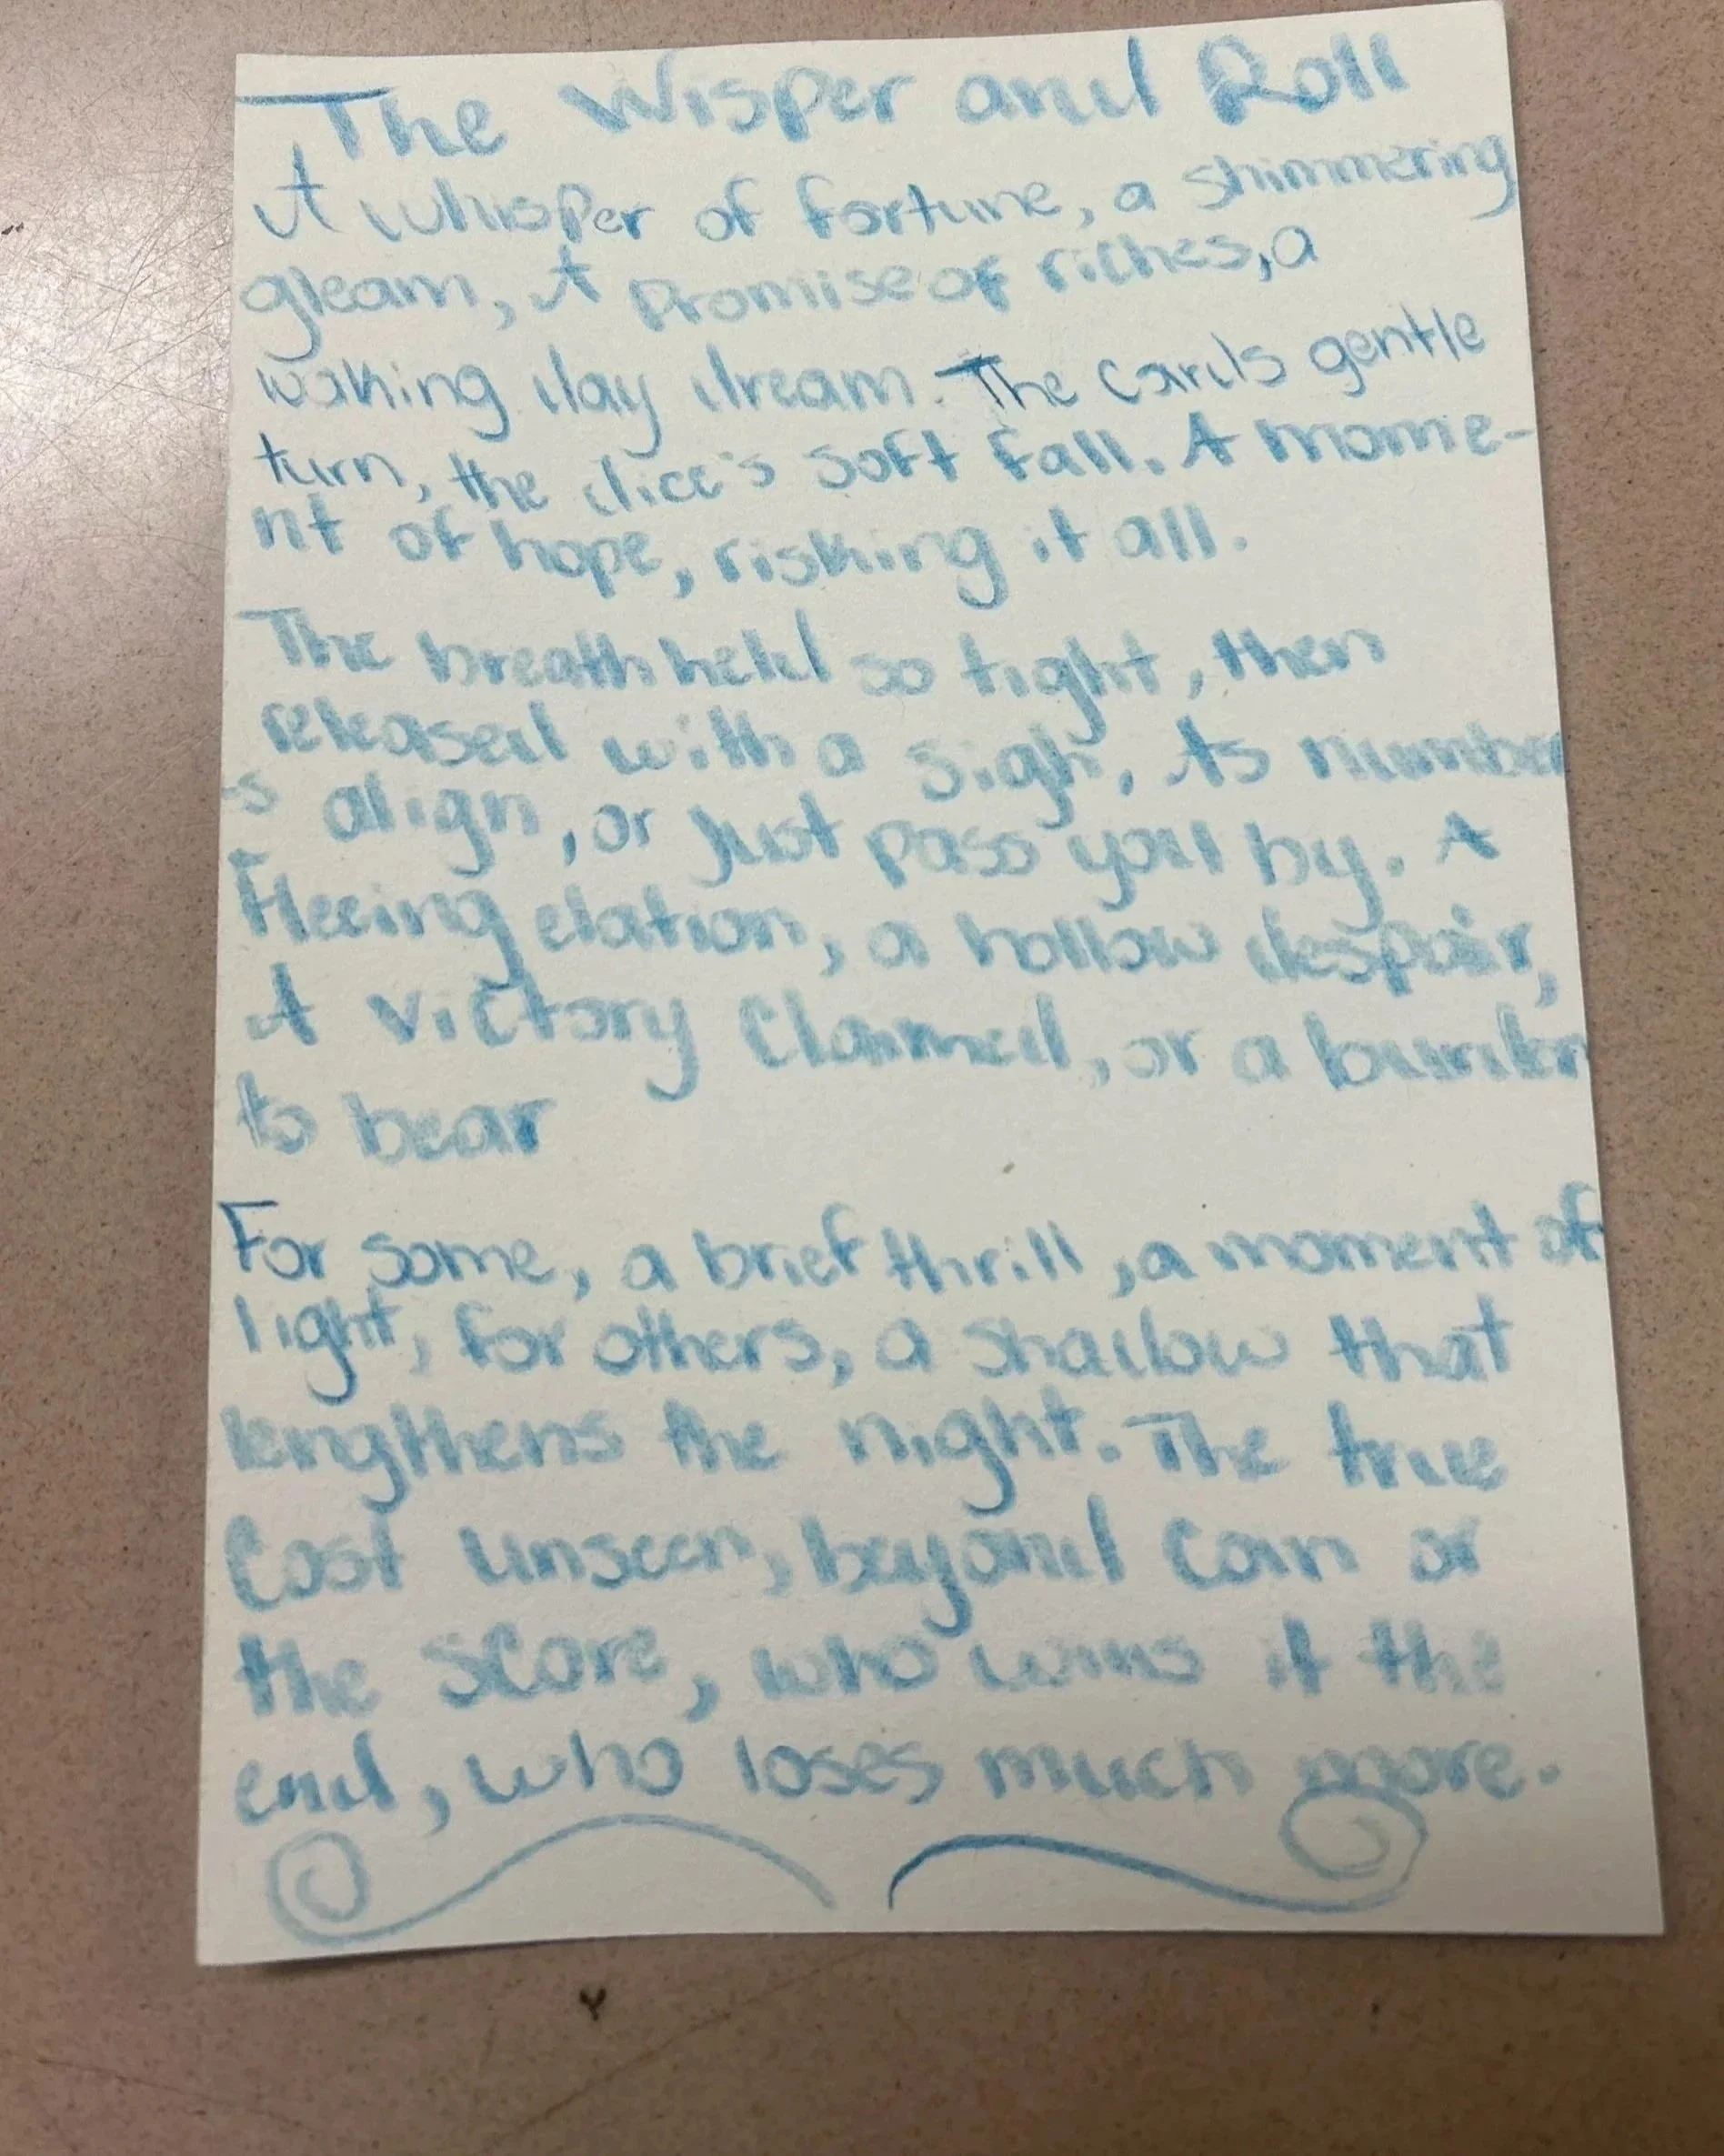 The Wisper and Roll
A whisper of fortune, a shimmering
gleam, A promise of riches, a
waking day dream. The cards gentle
turn, the dice's soft fall. A mome-
nt of hope, risking it all.
The breath held so tight, then
released with a sigh, As number
s align, or Just pass you by. A
Fleeing elation, a hollow despair,
A victory Claimed, or a burden
to bear
For some, a brief thrill, a moment of
light, for others, a shadow that
lengthens the night. The true
Cost unseen, beyond Coin or
the score, who wins it the
end, who loses much more.